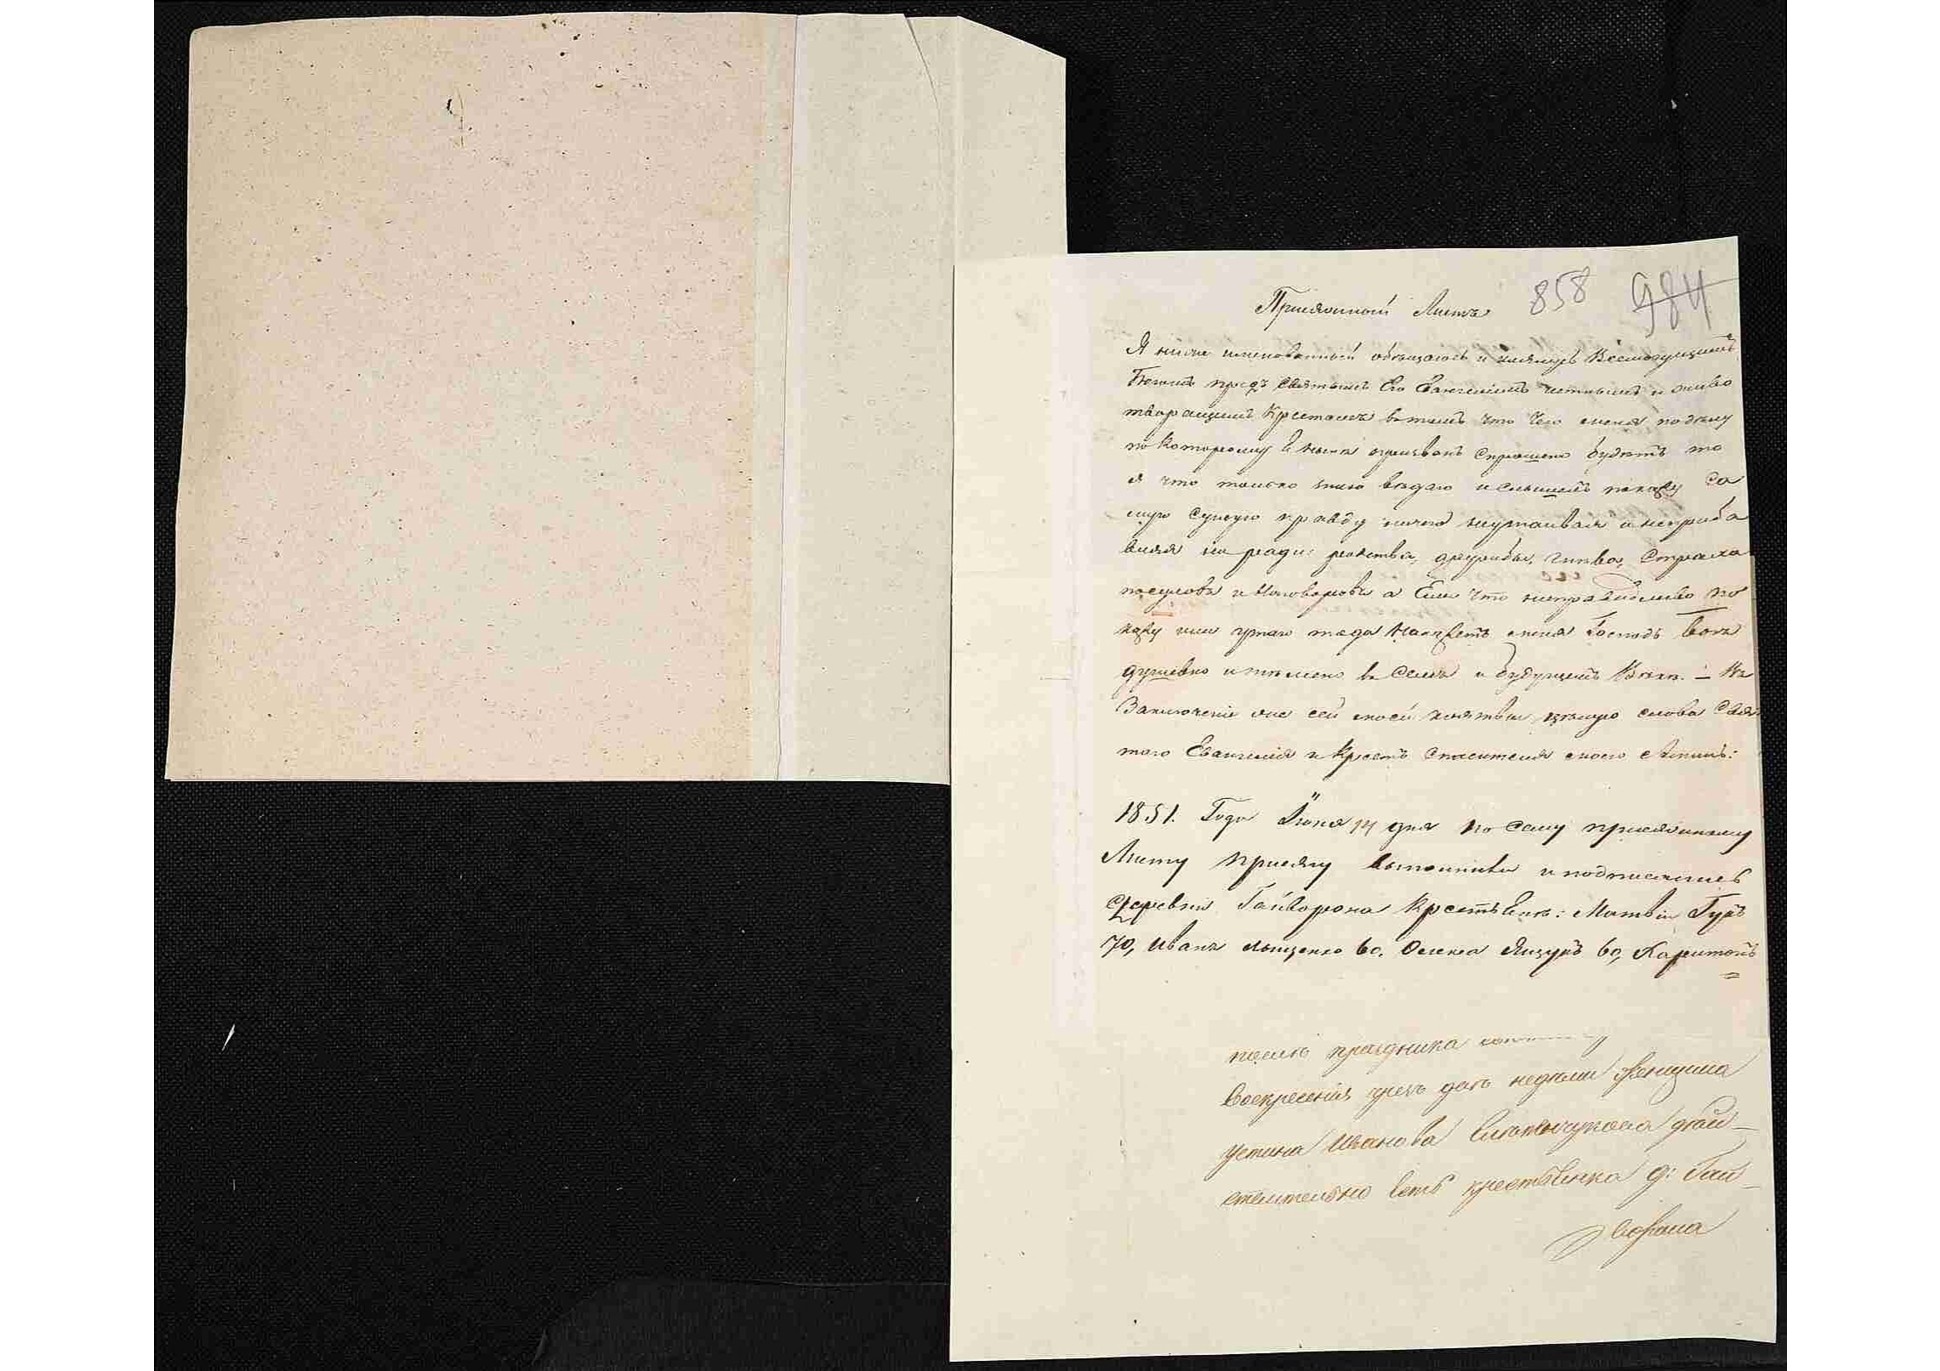 858 984
Присяжный Листъ
Я ниже имянованный обѣщаюсь и клянусь Всемогущимъ
Богомъ предъ Святымъ Его Евангелiемъ честнымъ и живо
творящимъ Крестомъ втомъ что Чего меня подѣлу
по Которому Я нынѣ призванъ Спрошено будетъ то
я что только знаю вѣдаю и слышалъ покажу Са
мую сущую правду ничего неутаивая инеприба
вляя ни ради: родства, дружбы, гнѣва, Страха
посуловъ и Наговоровъ а Ели что несправедливо по
кажу или утаю тогда Накажетъ меня Господь Богъ
душевно ителесно въ Семъ и будущемъ Вѣкѣ. – Въ
Заключенiе же сей моей клятвы цѣлую слова Свя
того Евангелiя и Крестъ Спасителя моего Аминь:
1851. Года Iюня 14 дня по Сему присяжному
Листу присягу выполнили и подписались
Деревни Гайворона Крестьяне: Матвiй Гукъ
70, Иванъ Лищенко 60. Олекса Яшукъ 60, Харитонъ
после праздника
Воскресенiя чрезъ двѣ недѣли женщина
устина Иванова дѣй–
ствительно Есть крестьянка д: Гай–
ворона